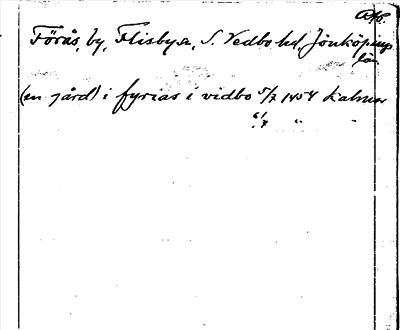 Förås, by, Flisby sn, S. Vedbo hd, Jönköpings
län
(en gård) i fyrias i vidbo 5/7 1454 Kalmar
6/7 " "